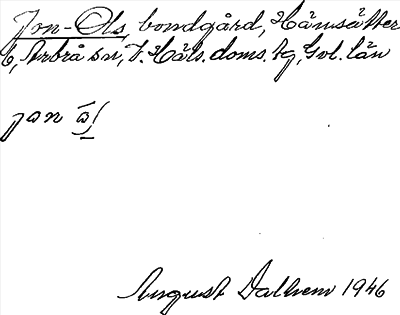 Jon-Ols, bondgård, Hämsätter
6, Arbrå sn, V. Häls. doms. tg, Gvl. län
jon àl
August Dalhem 1946